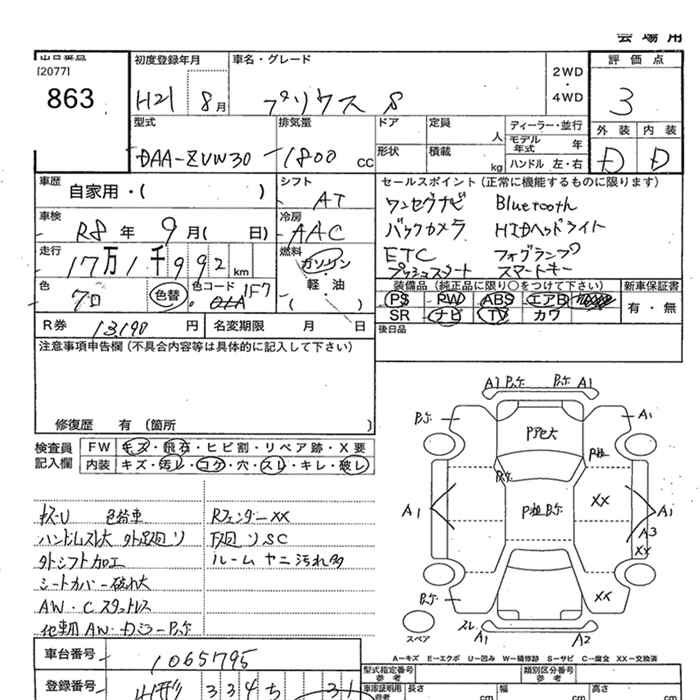 会場用
出品番号
[2077]
863
初度登録年月
H21 8月
車名・グレード
プリウス S
2WD
・
4WD
評価点
3
外装 内装
D D
型式
DAA-ZVW30
排気量
1800 CC
ドア
形状
定員
人
積載
kg
ディーラー・並行
モデル年式 年
ハンドル 左・右
車歴
自家用・( )
シフト
AT
車検
R8 年 9 月( 日)
冷房
AAC
走行
17万1千992 km
燃料
ガソリン
・
軽・油
( )
色
クロ
色替
色コード
1F7
セールスポイント(正常に機能するものに限ります)
ワンセグナビ Bluetooth
バックカメラ HIDヘッドライト
ETC フォグランプ
プッシュスタート スマートキー
装備品(純正品に限り○をつけて下さい)
PS RW ABS エアB
SR ナビ TV カワ
新車保証書
有・無
R券 13,190 円
名変期限 月 日
後日品
注意事項申告欄(不具合内容等は具体的に記入して下さい)
修復歴 有 〔箇所 〕
検査員記入欄
FW キズ・飛石・ヒビ割・リペア跡・X要
内装 キズ・汚レ・コゲ・穴・スレ・キレ・破レ
色替車
Rフェンダー XX
下廻りSC
外シフト加工
ルームヤニ汚れ多
シートカバー破れ大
AW・Cスタッドレス
A1 A1
A1
A1 A1
A3
XX
XX
XX
スレ
A1 A2
スペア
A-キズ E-エクボ U-凹み W-補修跡 S-サビ C-腐食 XX-交換済
車台番号
1065795
登録番号
山形 334 31
型式指定番号
参考
類別区分番号
参考
車庫証明用
参考
長さ
cm
幅
cm
高さ
cm